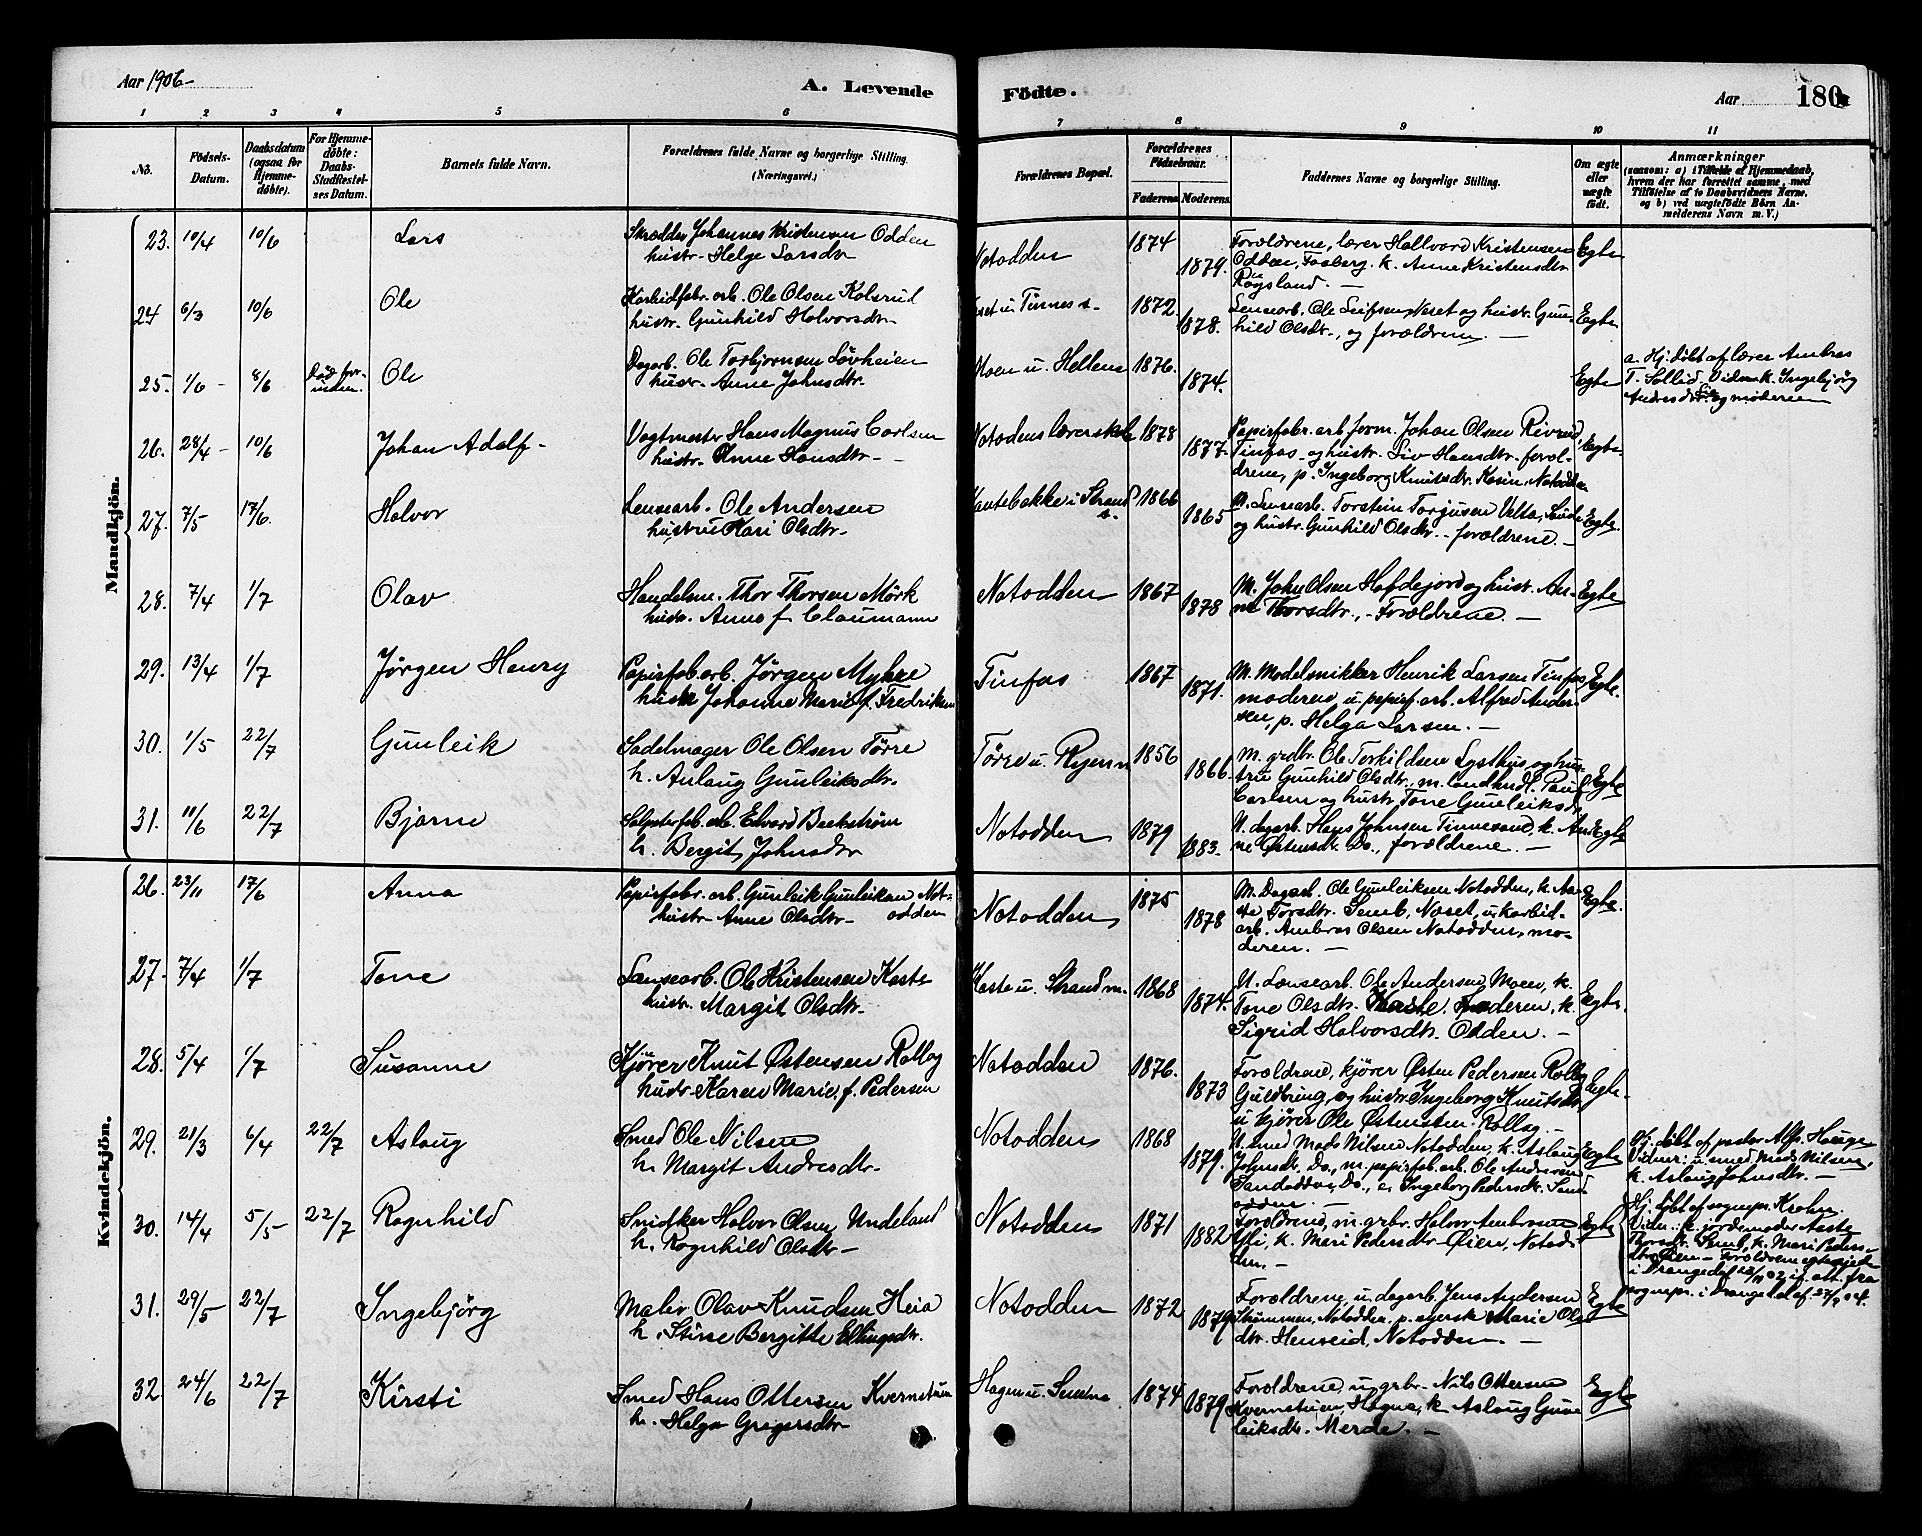 Aar 1906-
A. Levende
Födte.
Aar
180
1 2 3 4 5 6 7 8 9 10 11
No.
Födsels-
Datum.
Daabsdatum
(ogsaa for
Hjemme-
döbte).
For Hjemme-
döbte:
Daabs-
Stadfæstel-
ses Datum.
Barnets fulde Navn.
Forældrenes fulde Navne og borgerlige Stilling.
(Næringsvei.)
Forældrenes Bopæl.
Forældrenes
Födselsaar.
Faderens Moderens
Faddernes Navne og borgerlige Stilling.
Om ægte
eller
uægte
födt.
Anmærkninger
(saasom: a) i Tilfælde af Hjemmedaab,
hvem der har forrettet samme, med
Tilföielse af to Daabsvidners Navne,
og b) ved uægtefödte Börn An-
melderens Navn m. V.)
Mandkjön.
23. 10/4 10/6 Lars
Skrædder Johannes Kristensen Odden
hustr. Helge Larsdtr
Notodden 1874 1879.
Forældrene, lærer Hallvard Kristensen
Odden, k. Anne Kristensdtr
Rogsland. -
Egte
24 6/3 10/6 Ole
Karbidfabr. arb. Ole Olsen Kolsrud
hustr. Gunhild Halvorsdtr
1872 1878.
Lensearb. Ole Leifsen Næset og hustr. Gun-
hild Olsdtr., og forældrene. -
Egte
25. 1/6 - 8/6 Död for-
inden. Ole
Dagarb. Ole Torbjörnsen Lövheien
hustr. Anne Johnsdtr.
Moen u. Hellens 1876. 1874.
Egte
a. Hj. döbt af lærer Ambros
T. Sollid. Vidn. k. Ingebjörg
Andresdtr. og moderen
26. 28/4 - 10/6 Johan Adolf -
Vagtmester Hans Magnus Carlsen
hustr. Anne Hansdtr. -
Notodens lærerskole 1878 1877.
Papirfabr. arb. form. Johan Olsen Rivrud,
Tinfos og hustr. Liv Hansdtr. foræl-
drene, p. Ingeborg Knutsdtr. Kasin, Notodden
Egte
27. 7/5 17/6. Halvor
Lensearb. Ole Andersen
hustru Kari Olsdtr.
Kantebakke u Strand 1866 1865
M. Lensearb. Torstein Torjusen
og hustr. Gunhild Olsdtr. - forældrene. -
Egte
28. 7/4 1/7 Olav
Handelsm. Thor Thorsen Mörk
hustr. Anna f. Claumann
Notodden 1867 1878
M. John Olsen Hafdejord og hustr. An-
ne Thorsdtr., - Forældrene. -
Egte
29. 13/4 1/7 Jörgen Henry
Papirfab. arb. Jörgen Myhre
hustr Johanne Marie f. Fredriksen
Tinfos 1867 1871.
M. Modelsnikker Henrik Larsen Tinfos
moderen, u. papirf. arb. Alfred Ander-
sen, p. Helga Larsen. -
Egte.
30. 1/5 22/7 Gunleik
Sadelmager Ole Olsen Törre
h. Anlaug Gunleiksdtr.
Törre u. Ryenn 1856 1866.
M. grdbr. Ole Torkildsen Lysthus og hus-
tru Gunhild Olsdtr., m. landhndl. Paul
Carlsen og hustr. Tone Gunleiksd.
Egte
31. 10/6 22/7 Bjarne
Salpeterfab. arb. Edvard Backström
h. Bergit Johnsdtr
Notodden 1879 1883.
U. dagarb. Hans Johnsen Tinnesand, k. An-
ne Östensdtr. Do., forældrene. -
Egte
Kvindekjön.
26. 23/11 17/6 Anna
Papirfabr. arb. Gunleik Gunleiksen Not-
hustr. Anne Olsdtr - odden
Notodden, 1875 1878
M. Dagarb. Ole Gunleiksen Notodden, k. Aa-
se Torsdtr. Semb, Næset, u. karbid-
arb. Ambros Olsen Notodden, mo-
deren. -
Egte.
27. 7/4 1/7 Tone
Lensearb. Ole Kristensen Kaste
hustr. Margit Olsdtr.
Kaste u. Strand m. 1868 1874.
U. Lensearb. Ole Andersen Moen, k.
Tone Olsdtr. Kaste. Faderen, k.
Sigrid Halvorsdtr. Odden. -
Egte
28. 5/4 1/7 Susanne
Kjörer Knut Östensen Rollag
hustr. Karen Marie, f. Pedersen
Notodden 1876. 1873
Forældrene, kjörer Östen Pedersen Rollag
Guldbring, og hustr. Ingeborg Knutsdtr.
u kjörer Ole Östensen Rollag. -
Egte.
29. 21/3 6/4 22/7 Aslaug
Smed Ole Nilsen
h. Margit Andresdtr.
Notodden 1868 1879.
U. smed Mads Nilsen Notodden, k. Aslaug
Johnsdtr. Do., m. papirfab. arb. Ole Andersen
Sandodden, Do., e. Ingeborg Pedersdtr. Sand-
odden. -
Egte
Hj. döbt af pastor Alf. Hauge
Vidner: u. smed Mads Nilsen,
k. Aslaug Johnsdtr. -
30. 14/4 5/5 - 22/7 Ragnhild
Snidker Halvor Olsen Undeland
h. Ragnhild Olsdtr -
Notodden 1871 1882
Forældrene, m. grbr. Halvor Ambrosen
Lii, k. Mari Pedersdtr Öien, Notod-
den. -
Egte
Hj. döbt af sognepr. Krohn.
Vidn.: k. jordemoder Aaste
Thorsdtr. Semb, k. Mari Peders-
dtr Öien - Forældrene egteviede
i Drangedal 22/11 02 if. att. fra
sognepr. i Drangedal af 27/4 04.
31. 29/5 22/7 Ingebjörg
Maler Olav Knudsen Heia
h. Stirse Bergitte Ellingsdtr.
Notodden 1872 1879
Forældrene, u dagarb. Jens Andersen
Strömmen, Notodden, p. syersk Marie Ols-
dtr. Henseid, Notodden. -
Egte
32. 24/6 22/7 Kirsti
Smed Hans Ottersen Kvernstuen
h. Helga Gregersdtr
Hagen u. Semene 1874 1879
Forældrene, u. grbr. Nils Ottersen
Kvernstuen, Hagen, k Aslaug Gun-
leiksdtr. Merde. -
Egte